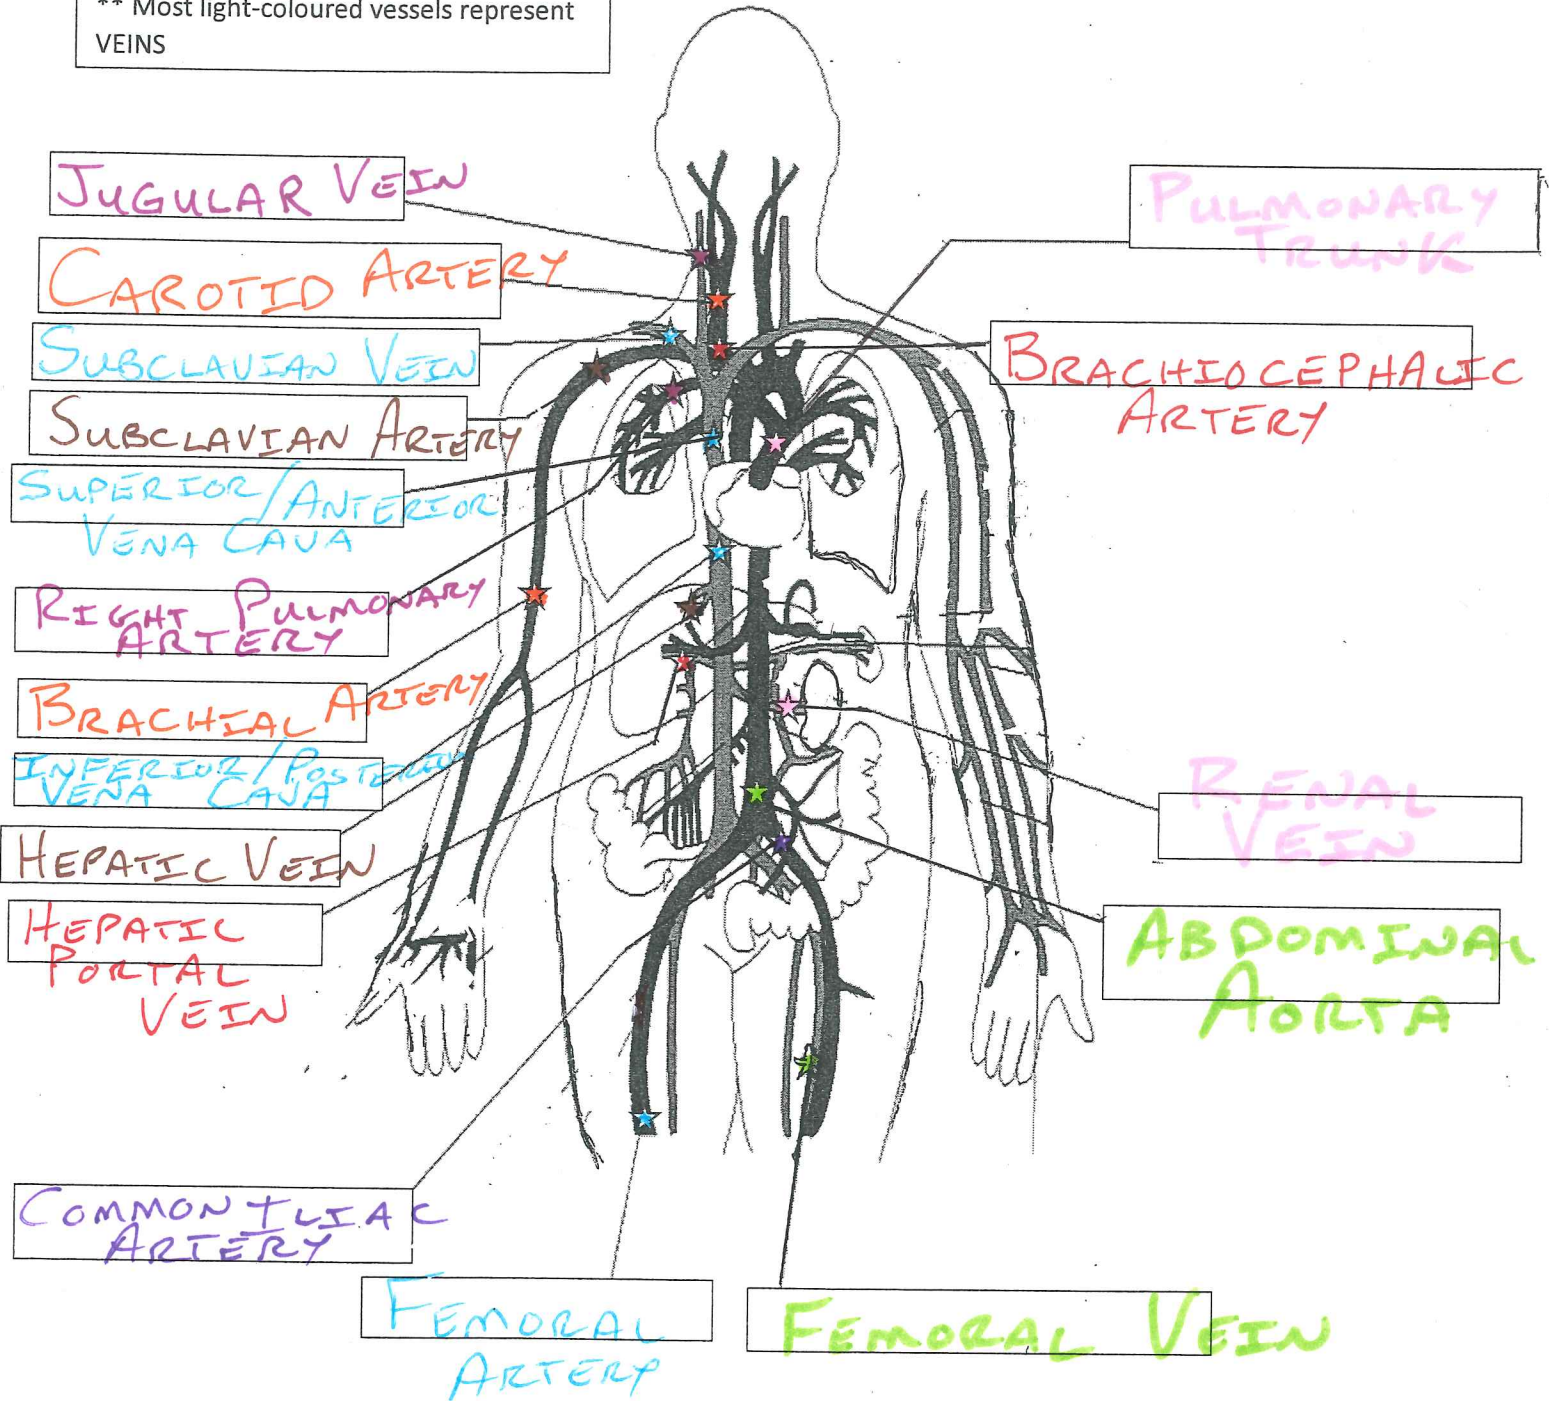 ** Most light-coloured vessels represent
VEINS
JUGULAR VEIN
CAROTID ARTERY
SUBCLAVIAN VEIN
SUBCLAVIAN ARTERY
SUPERIOR/ANTERIOR
VENA CAVA
RIGHT PULMONARY
ARTERY
BRACHIAL ARTERY
INFERIOR/POSTERIOR
VENA CAVA
HEPATIC VEIN
HEPATIC
PORTAL
VEIN
COMMON ILIAC
ARTERY
FEMORAL
ARTERY
FEMORAL VEIN
PULMONARY
TRUNK
BRACHIOCEPHALIC
ARTERY
RENAL
VEIN
ABDOMINAL
AORTA